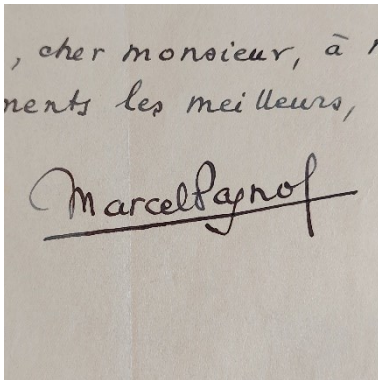 , cher monsieur, à
ments les meilleurs,
Marcel Pagnol